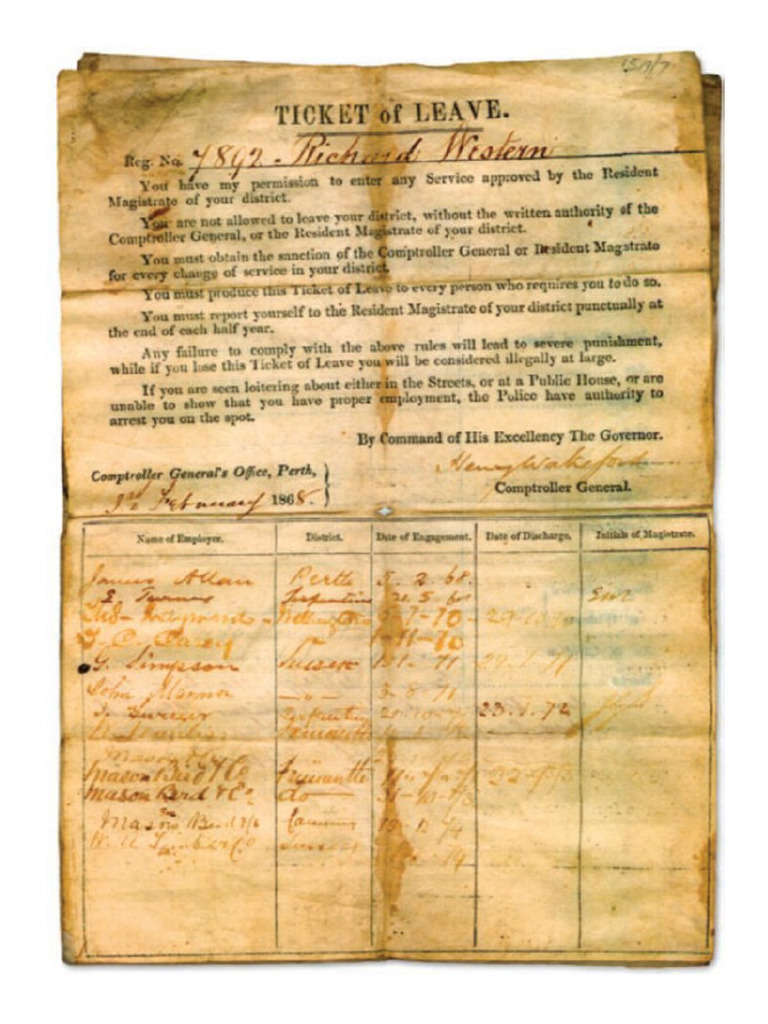 TICKET of LEAVE.
Reg. No. 7892 - Richard Western
You have my permission to enter any Service approved by the Resident
Magistrate of your district.
You are not allowed to leave your district, without the written authority of the
Comptroller General, or the Resident Magistrate of your district.
You must obtain the sanction of the Comptroller General or Resident Magistrate
for every change of service in your district.
You must produce this Ticket of Leave to every person who requires you to do so.
You must report yourself to the Resident Magistrate of your district punctually at
the end of each half year.
Any failure to comply with the above rules will lead to severe punishment,
while if you lose this Ticket of Leave you will be considered illegally at large.
If you are seen loitering about either in the Streets, or at a Public House, or are
unable to show that you have proper employment, the Police have authority to
arrest you on the spot.
By Command of His Excellency The Governor.
Henry Wakeford
Comptroller General's Office, Perth,
Comptroller General.
3rd February 1868.
Name of Employer. District. Date of Engagement. Date of Discharge. Initials of Magistrate.
James Allan Perth 5. 2. 68.
E. Turner Serpentine 21. 5. 68
Wellington 7-70
T. C. Carey " 1-11-70
G. Simpson Sussex 71
John Mannor - " - 3-8-71
Serpentine 23.1.72
Mason Bird & Co Fremantle
Mason Bird & Co. do
Mason Bird & Co Canning
Timber Co